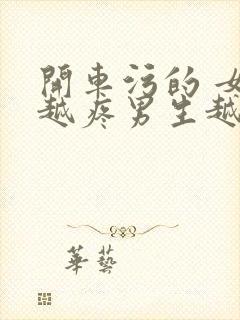 開車污的 女
越疼男生越
華藝